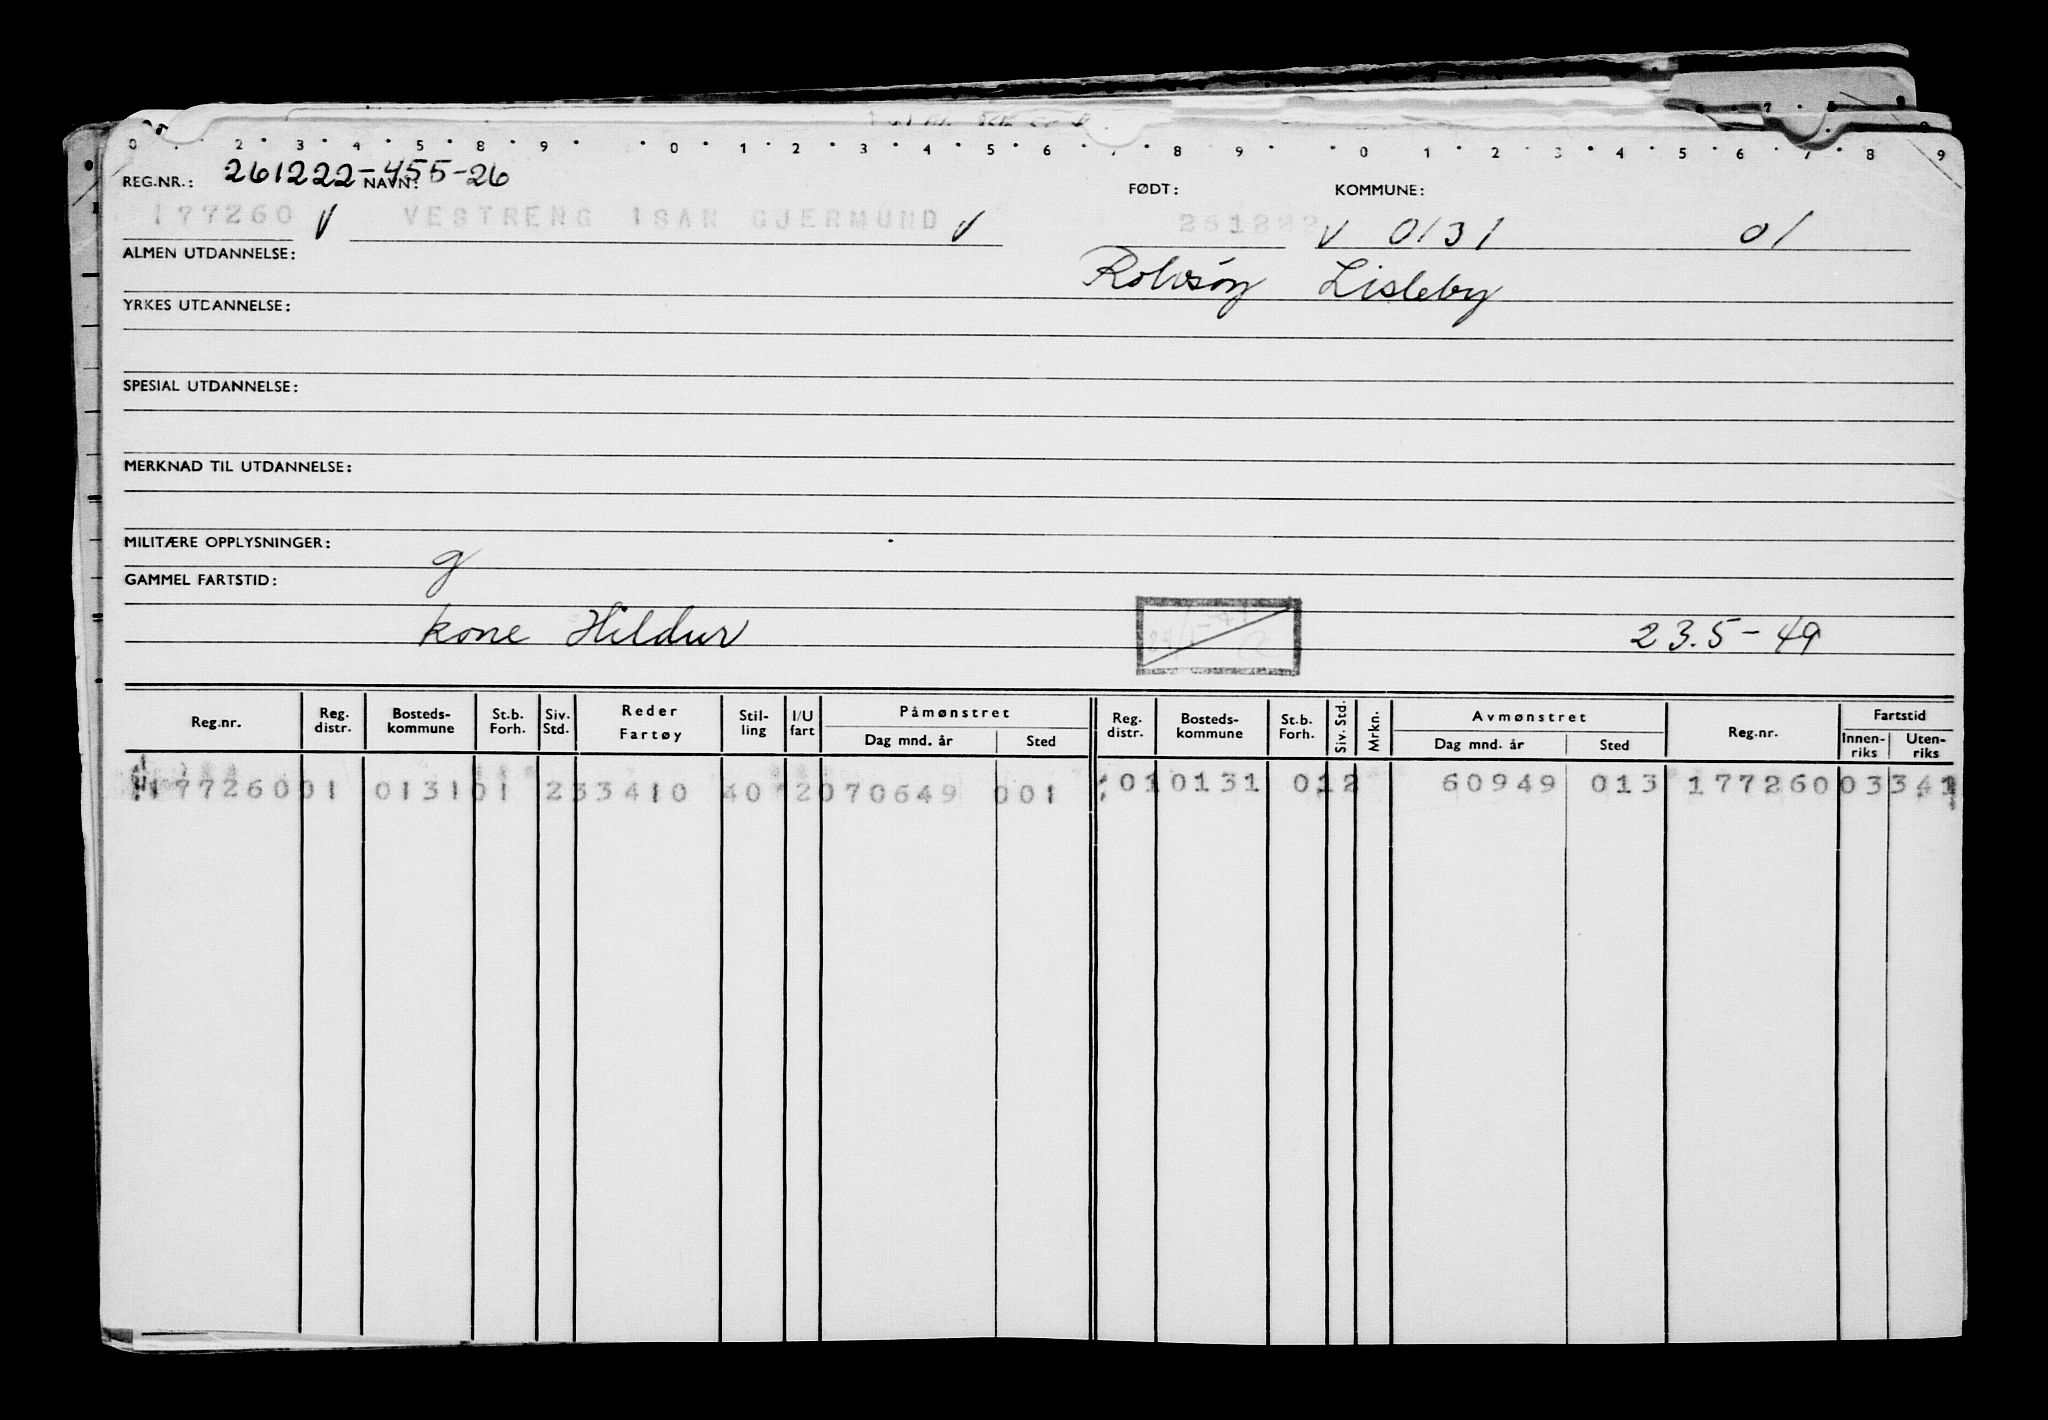 0 . 2 . 3 . 4 . 5 . 8 . 9 . . 0 . 1 . 2 . 3 . 4 . 5 . 6 . 7 . 8 . 9 . . 0 1 . 2 . 3 . 4 . 5 . 6 . 7 . 8 9
REG.NR.: 261222-455-26 NAVN: FØDT: KOMMUNE:
177260 V VESTRENG ISAN GJERMUND V 261222 V 0131 01
ALMEN UTDANNELSE: Rolvsøy Lisleby
YRKES UTDANNELSE:
SPESIAL UTDANNELSE:
MERKNAD TIL UTDANNELSE:
MILITÆRE OPPLYSNINGER: g
GAMMEL FARTSTID:
kone Hildur 23.5-49
Reg.nr. Reg. distr. Bosteds-kommune St.b. Forh. Siv. Std. Reder Fartøy Stil-ling I/U fart Påmønstret Dag mnd. år Sted Reg. distr. Bosteds-kommune St.b. Forh. Siv. Std. Mrkn. Avmønstret Dag mnd. år Sted Reg.nr. Fartstid Innen-riks Uten-riks
177260 01 0131 01 2 33410 40 2 070649 001 01 0131 01 2 60949 013 177260 03 341